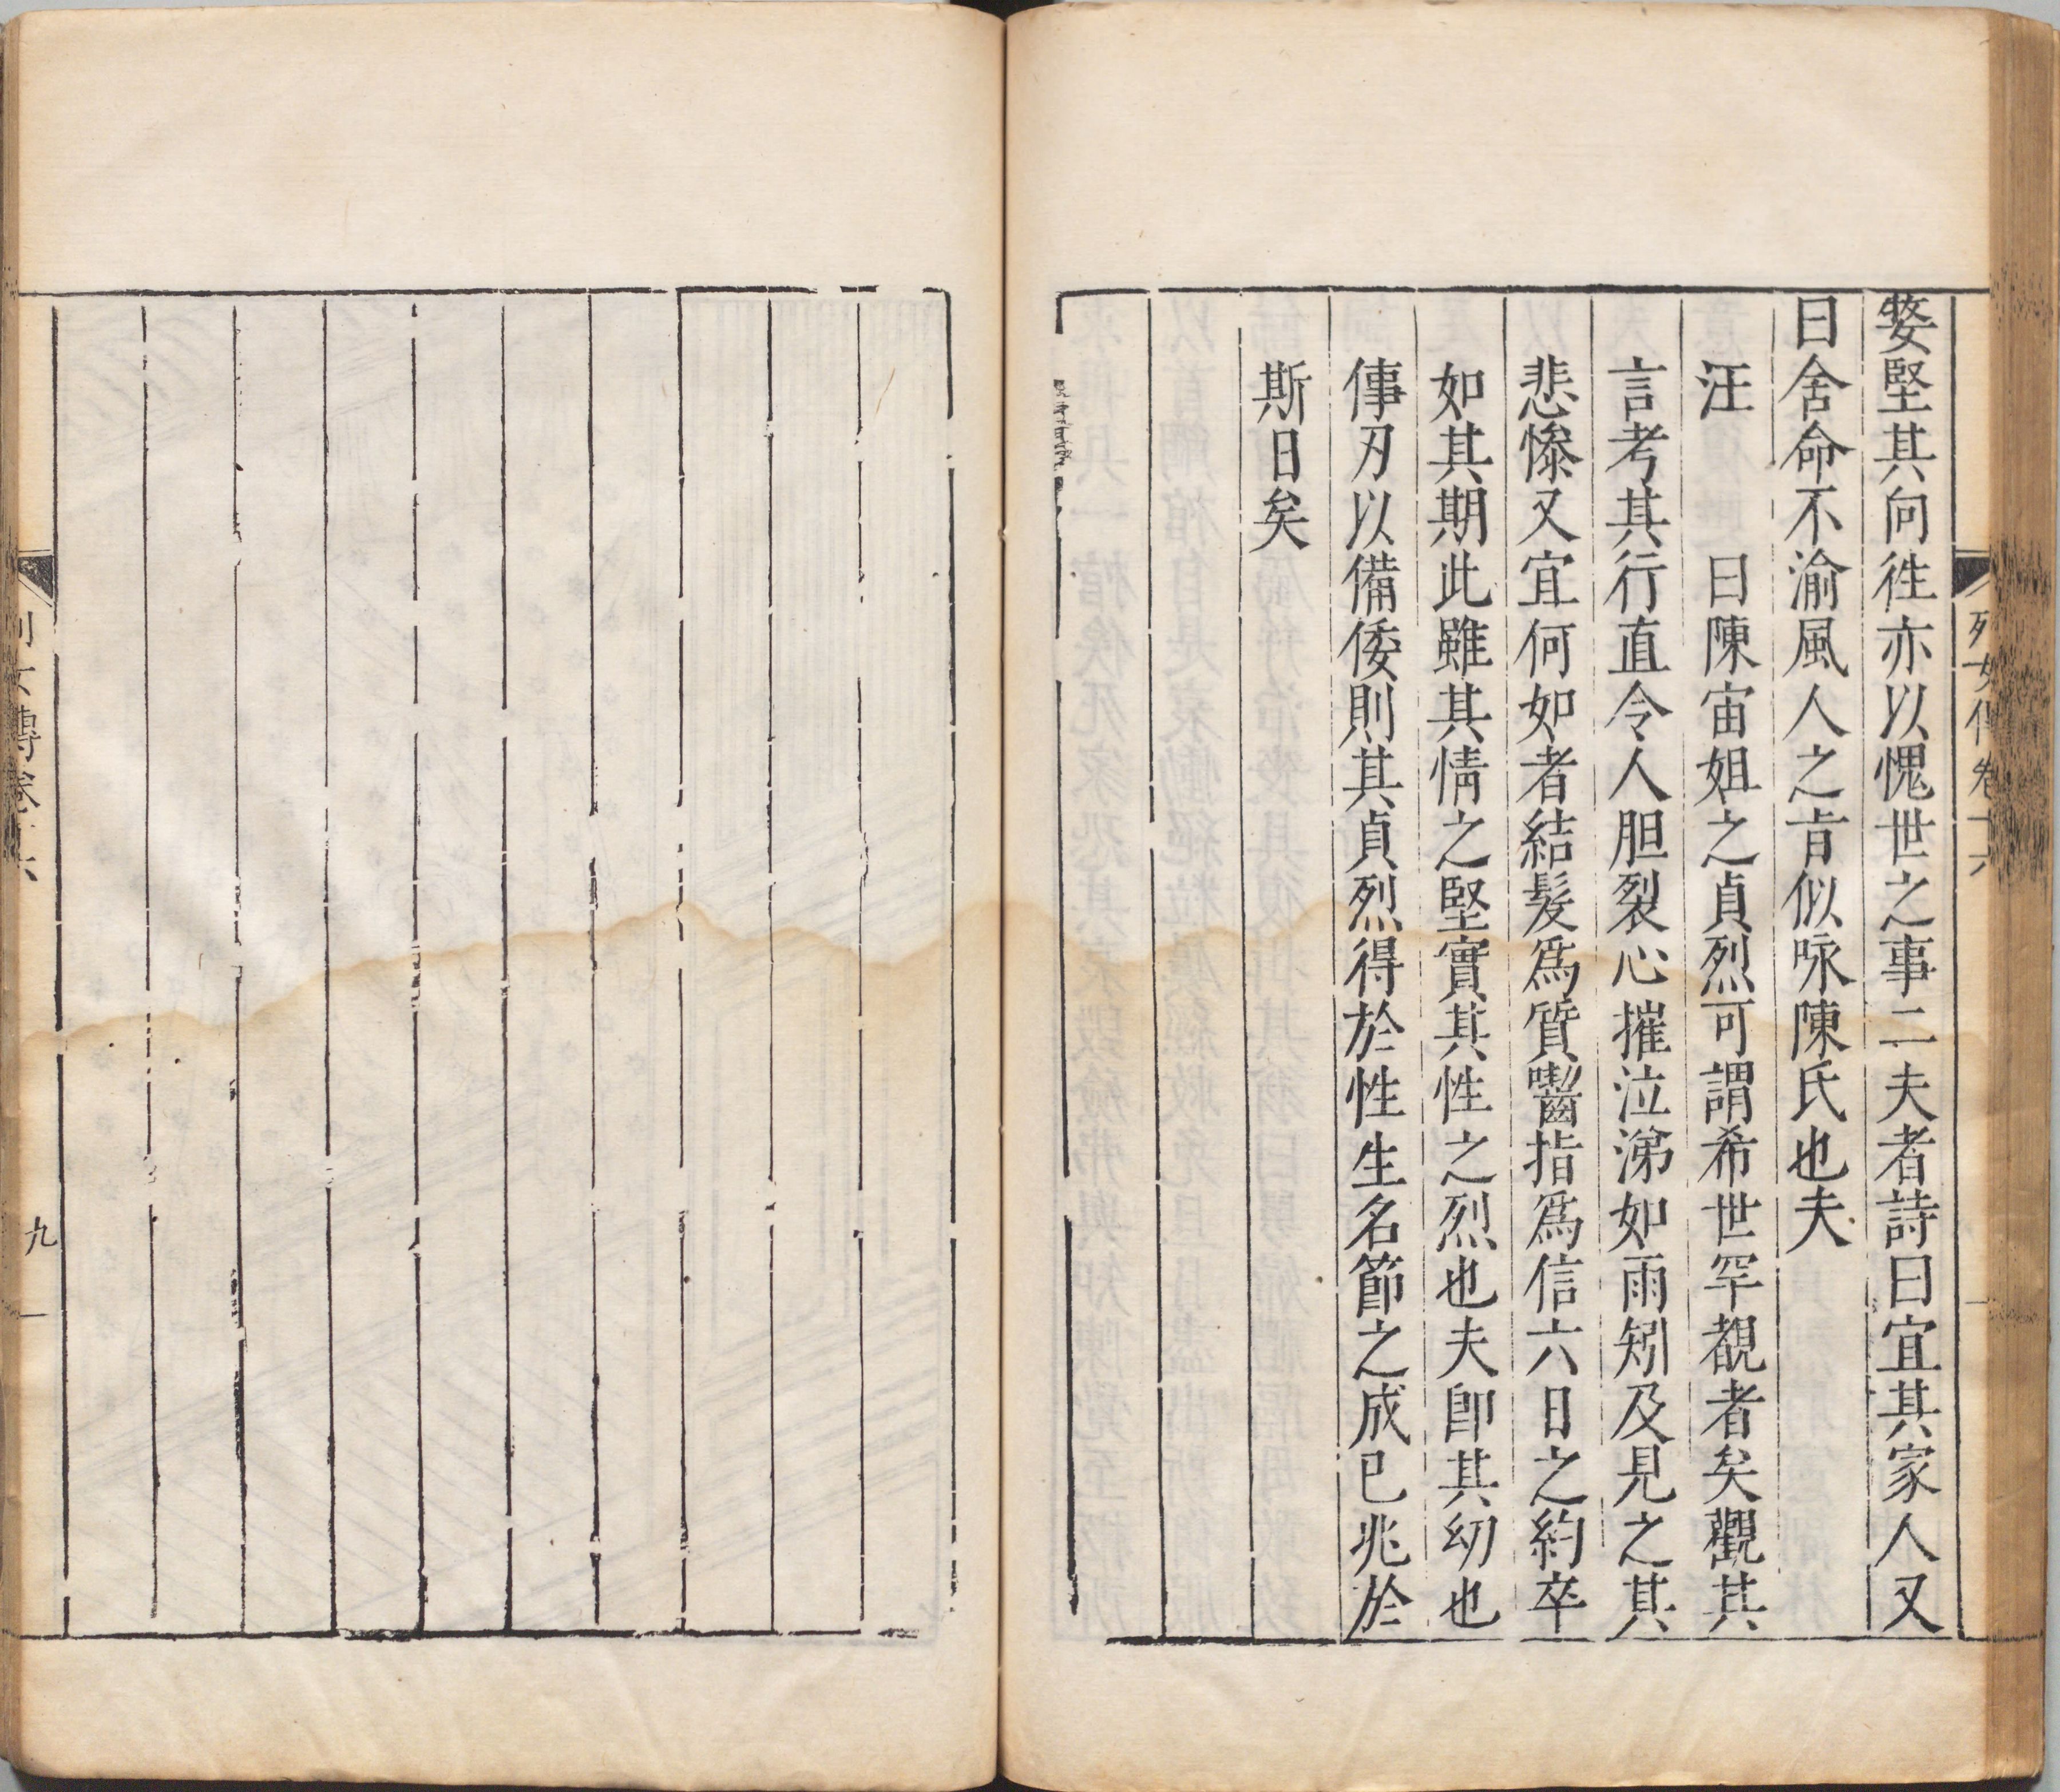 列女傳卷十六
婺堅其向徃亦以愧世之事二夫者詩曰宜其家人又
曰舍命不渝風人之肯似咏陳氏也夫
汪 曰陳宙姐之貞烈可謂希世罕覩者矣觀其
言考其行直令人胆裂心摧泣涕如雨矧及見之其
悲慘又宜何如者結髮爲質嚙指爲信六日之約卒
如其期此雖其情之堅實其性之烈也夫卽其幼也
倳刃以備倭則其貞烈得於性生名節之成已兆於
斯日矣
列女傳卷十六
九